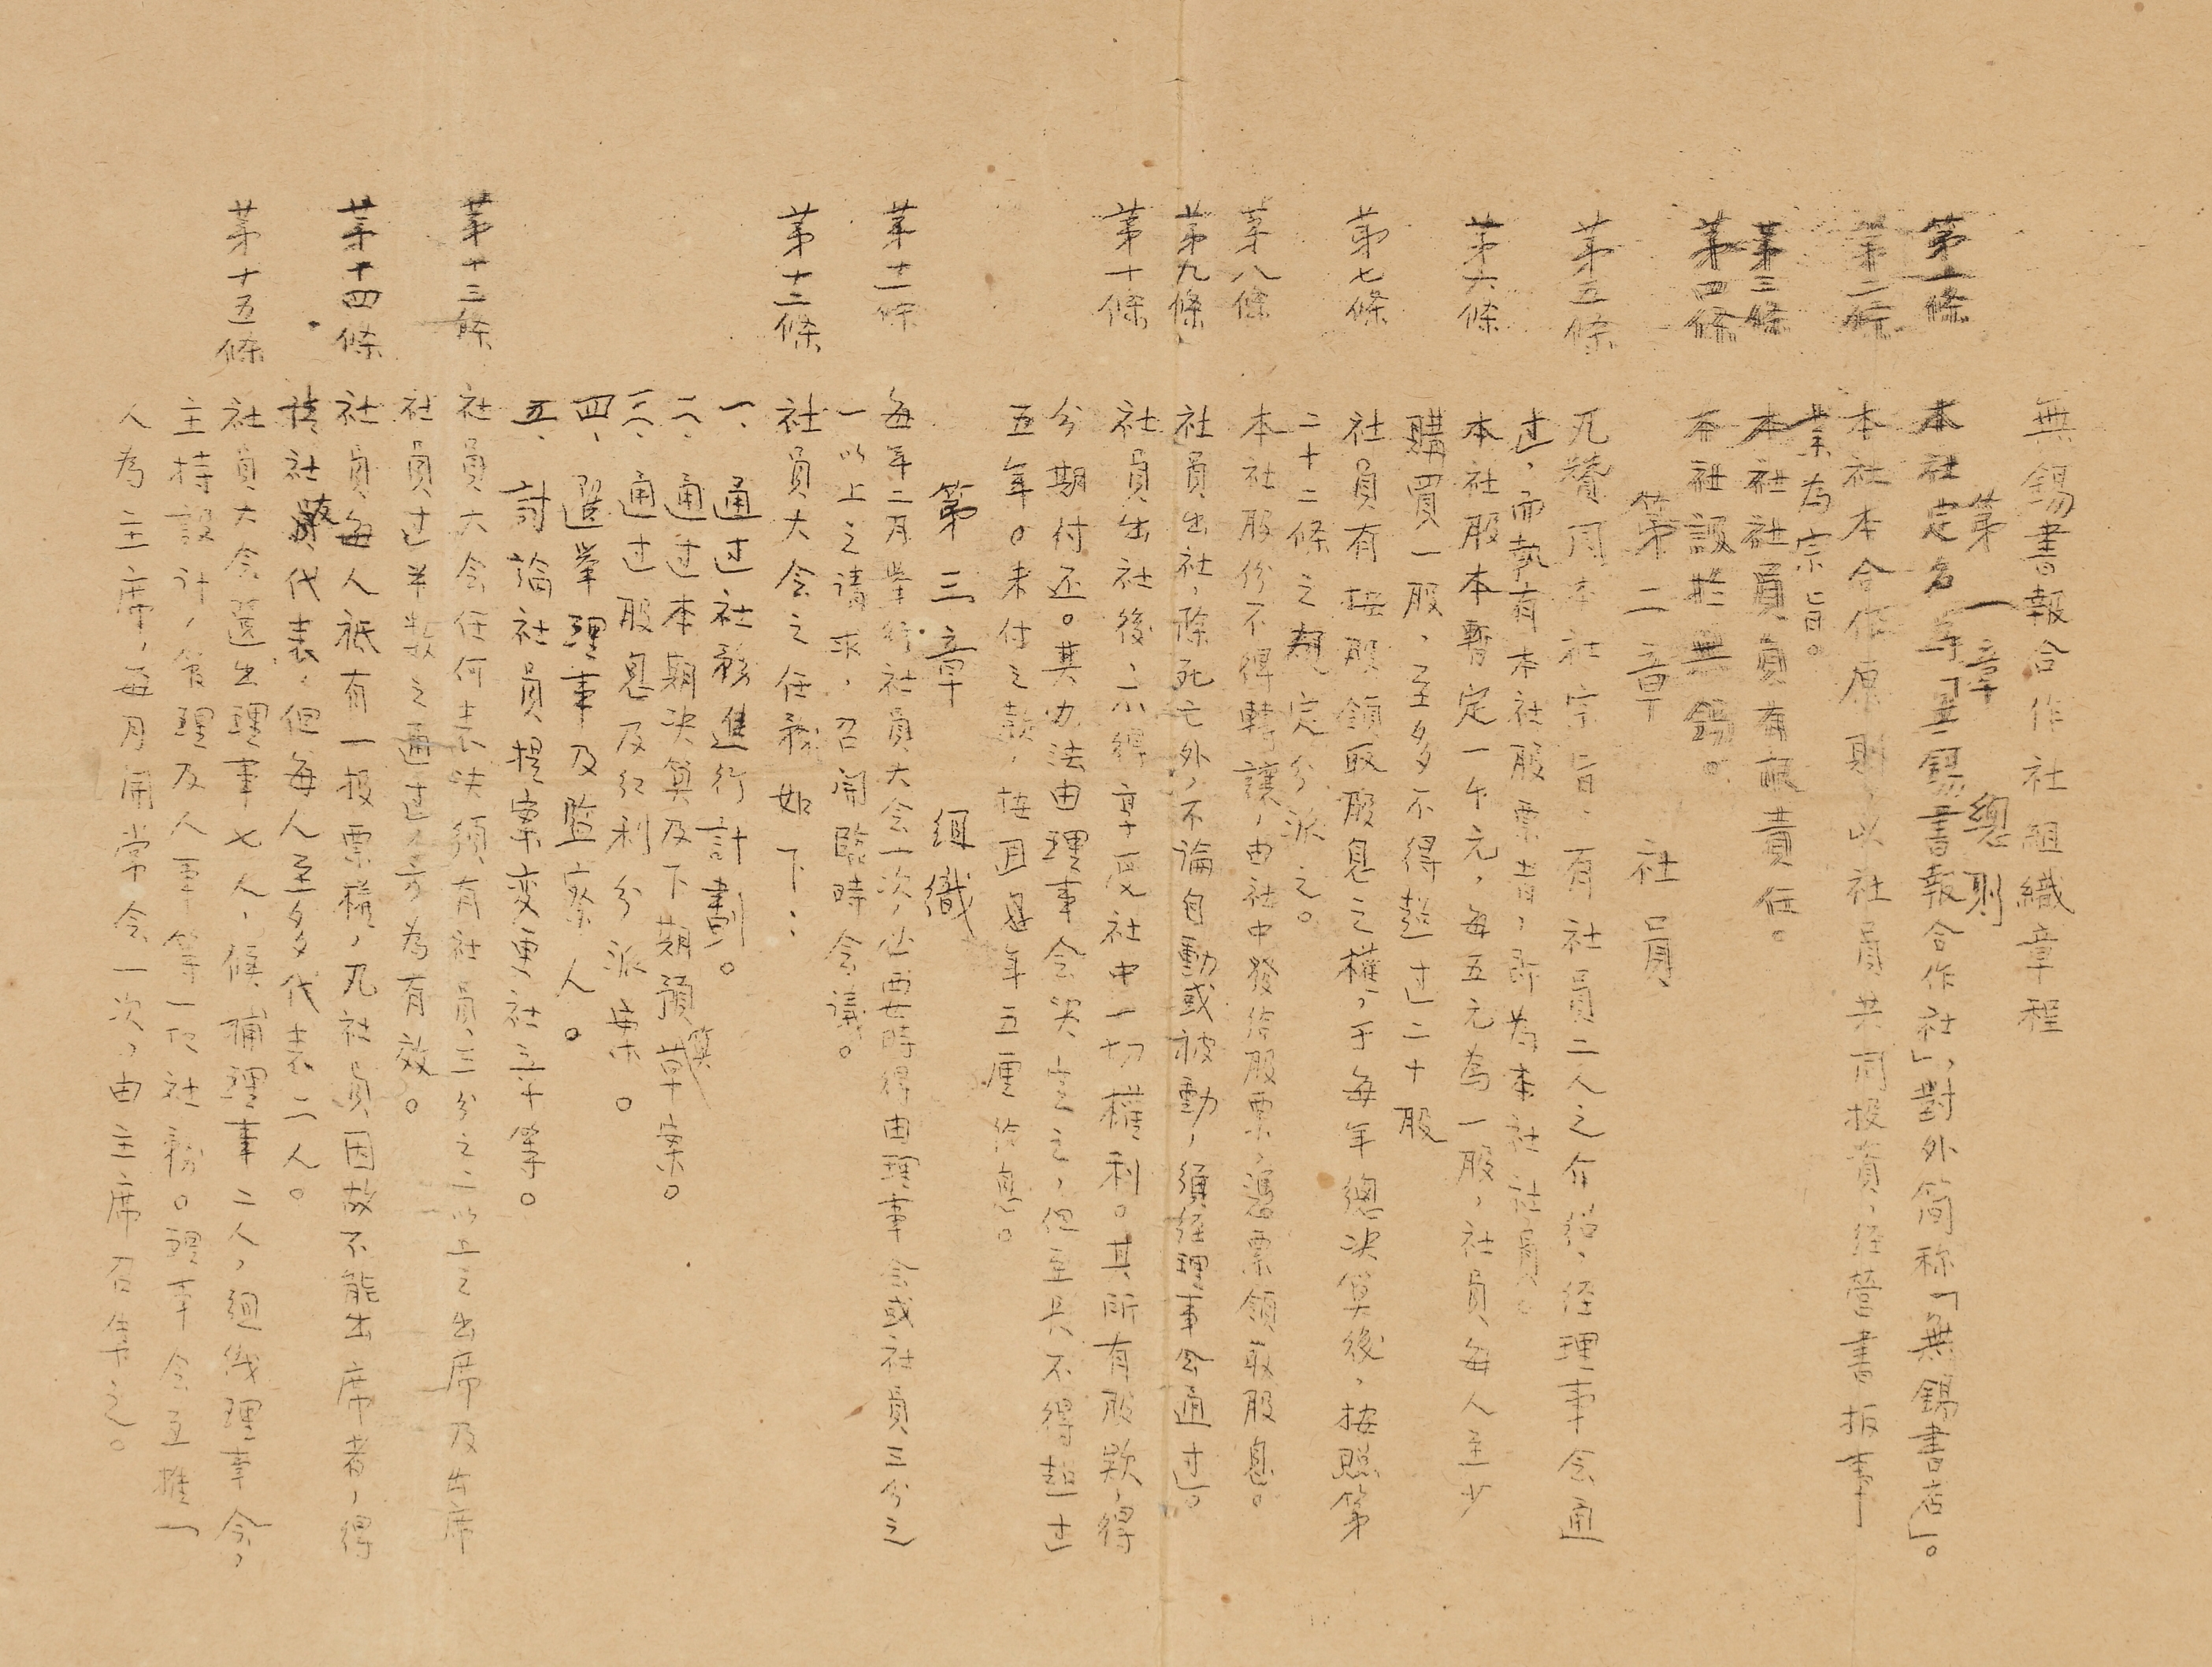 無錫書報合作社組織章程
第一章 總則
第一條 本社定名為「無錫書報合作社」，對外简称「無錫書店」。
第二條 本社本合作原則，以社員共同投資，经營書报事
業為宗旨。
第三條 本社社員負有限責任。
第四條 本社設於無錫。
第二章 社員
第五條 凡贊同本社宗旨，有社員二人之介紹，经理事会通
过，而執有本社股票者，即為本社社員。
第六條 本社股本暫定一千元，每五元為一股，社員每人至少
購買一股，至多不得超过二十股
第七條 社員有按股領取股息之權，于每年總决算後，按照第
二十二條之規定分派之。
第八條 本社股份不得轉讓，由社中發给股票，憑票領取股息。
第九條 社員出社，除死亡外，不論自動或被動，須经理事会通过。
第十條 社員出社後，不得享受社中一切權利。其所有股款，得
分期付还。其办法由理事会决定之，但至長不得超过
五年。未付之款，按週息年五厘给息。
第三章 組織
第十一條 每年二月舉行社員大会一次，必要時得由理事会或社員三分之
一以上之請求，召開臨時会議。
第十二條 社員大会之任務如下：
一、通过社務進行計劃。
二、通过本期决算及下期預算草案。
三、通过股息及红利分派案。
四、選舉理事及監察人。
五、討論社員提案变更社章等。
第十三條 社員大会任何表决須有社員三分之一以上之出席及出席
社員过半数之通过者為有效。
第十四條 社員每人祇有一投票權，凡社員因故不能出席者，得
请社員代表，但每人至多代表二人。
第十五條 社員大会選出理事七人，候補理事二人，組織理事会，
主持設计，管理及人事等一切社務。理事会互推一
人為主席，每月開常会一次，由主席召集之。